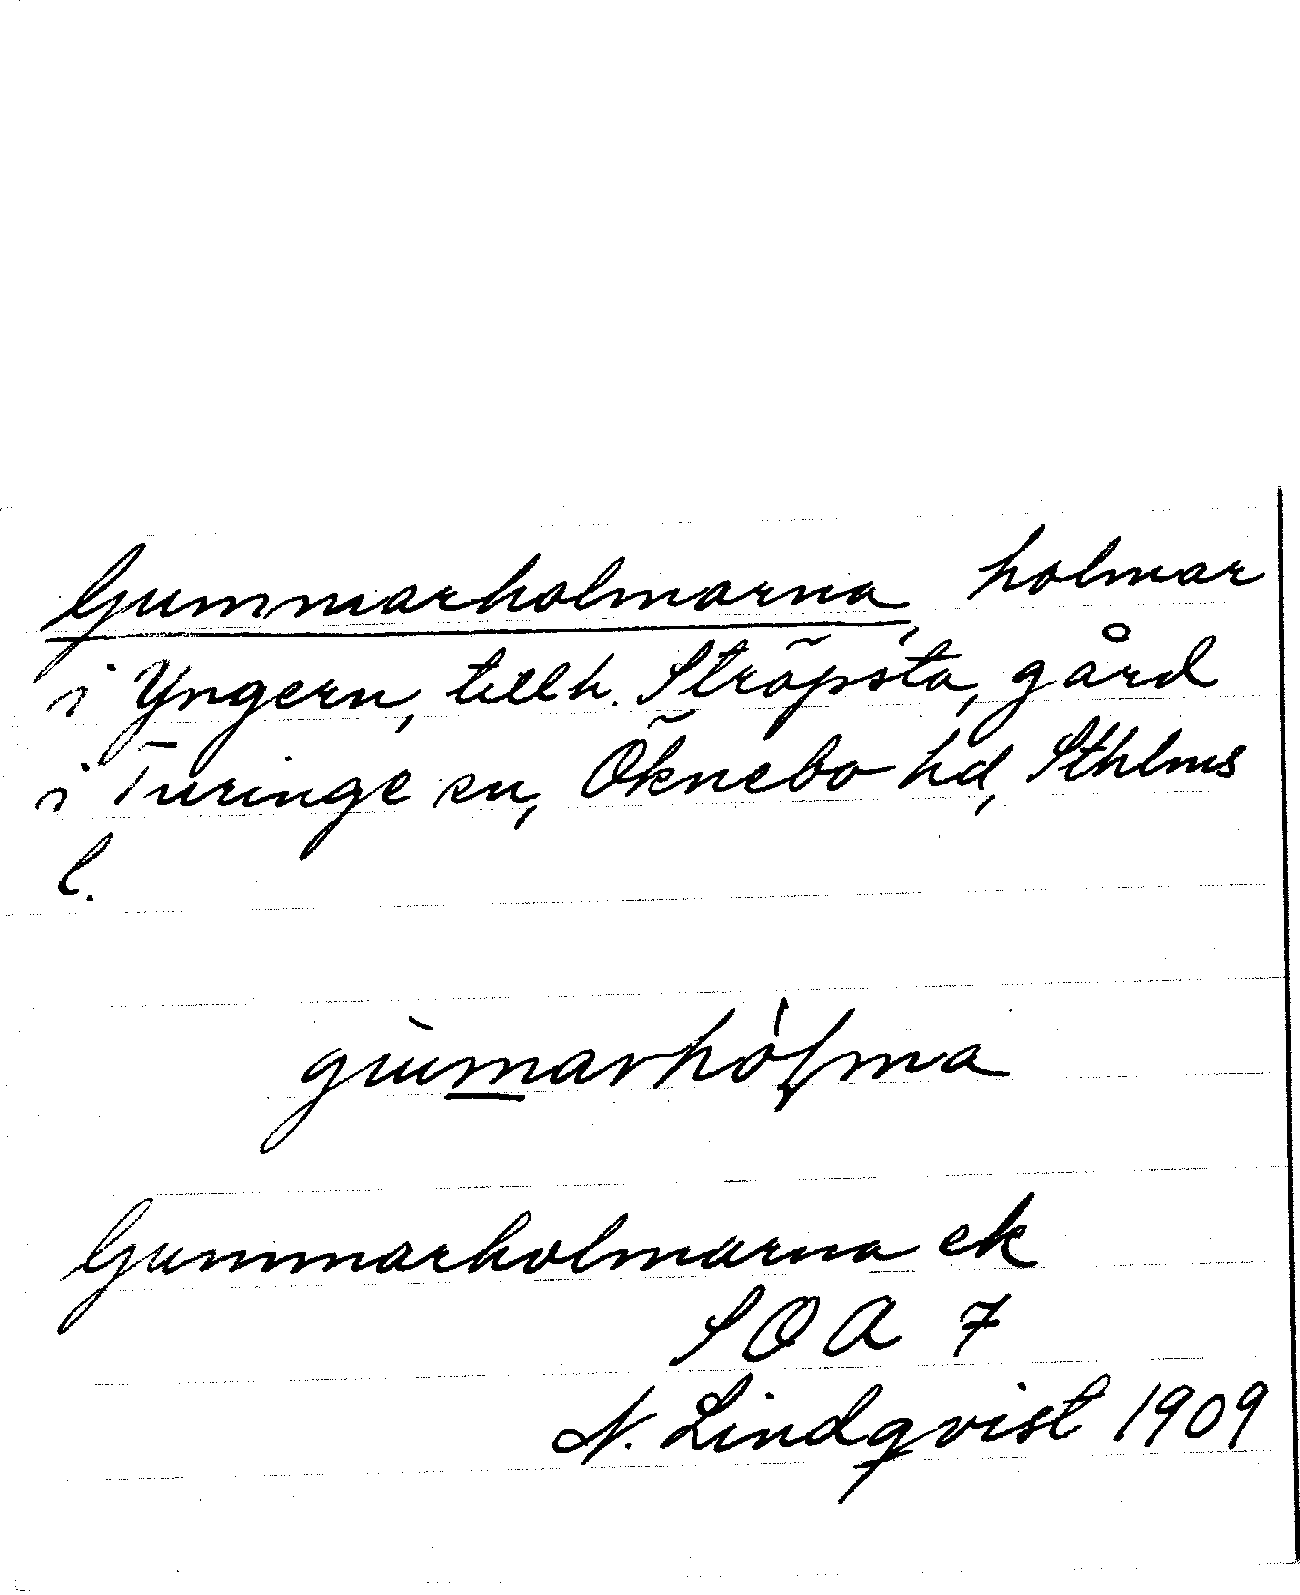 Gummarholmarna, holmar
i Yngern, tillh. Ströpsta, gård
i Turinge sn, Öknebo hd, Sthlms
l.
gùmarhól̬ma
Gummarholmarna ek
SOA 7
N. Lindqvist 1909